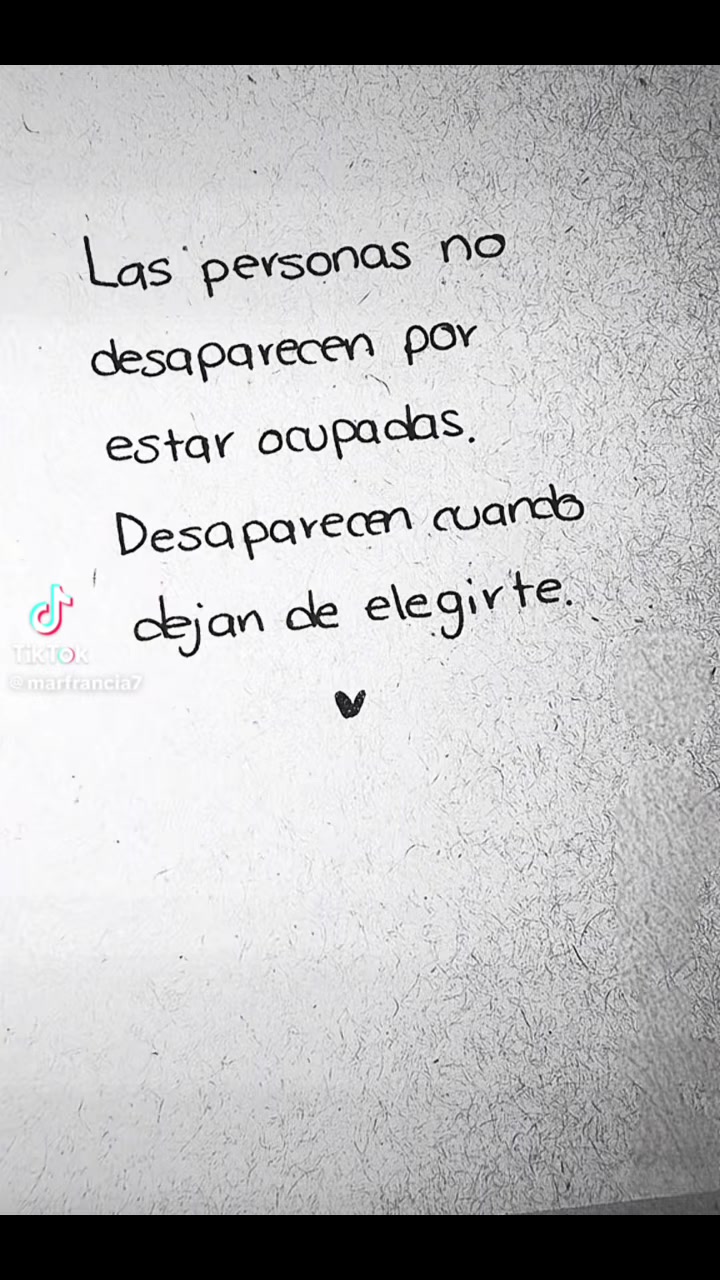 Las personas no
desaparecen por
estar ocupadas.
Desaparecen cuando
dejan de elegirte.
TikTok
@marfrancia7